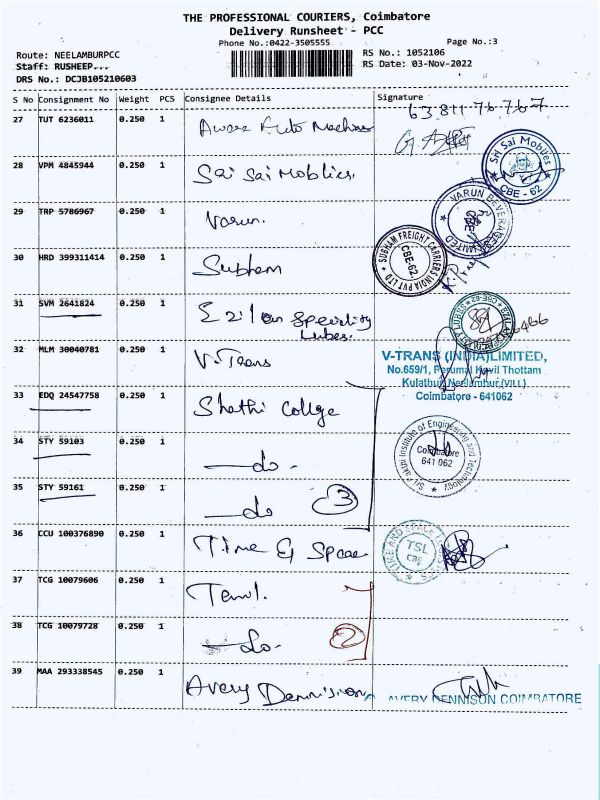 THE PROFESSIONAL COURIERS, Coimbatore
Delivery Runsheet - PCC
Phone No.:0422-3505555
Page No.:3
Route: NEELAMBURPCC
RS No.: 1052106
Staff: RUSHEEP...
RS Date: 03-Nov-2022
DRS No.: DCJB105210603
S No Consignment No Weight PCS Consignee Details Signature
27 TUT 6236011 0.250 1 Auto
28 VPM 4845944 0.250 1 Sai Sai Moblies. Sri Sai Moblies CBE - 62
29 TRP 5786967 0.250 1 Varun. VARUN BEVERAGES LIMITED
30 HRD 399311414 0.250 1 Subham SUBHAM FREIGHT CARRIERS INDIA PVT LTD CBE-62.
31 SVM 2641824 0.250 1 Speciality Lubes.
32 MLM 30040781 0.250 1 V-Trans V-TRANS (INDIA)LIMITED,
No.659/1, Perumal Kovil Thottam
Kulathur, Neelambur (VILL)
Coimbatore - 641062
33 EDQ 24547758 0.250 1 Shathi College
34 STY 59103 0.250 1 -do-
Institute of Engineering and Technology
Coimbatore
641 062
35 STY 59161 0.250 1 -do 3
36 CCU 100376890 0.250 1 Time & Space TIME AND SPACE TSL CBE
37 TCG 10079606 0.250 1
38 TCG 10079728 0.250 1 -do- 2
39 MAA 293338545 0.250 1 Avery Dennision AVERY DENNISON COIMBATORE